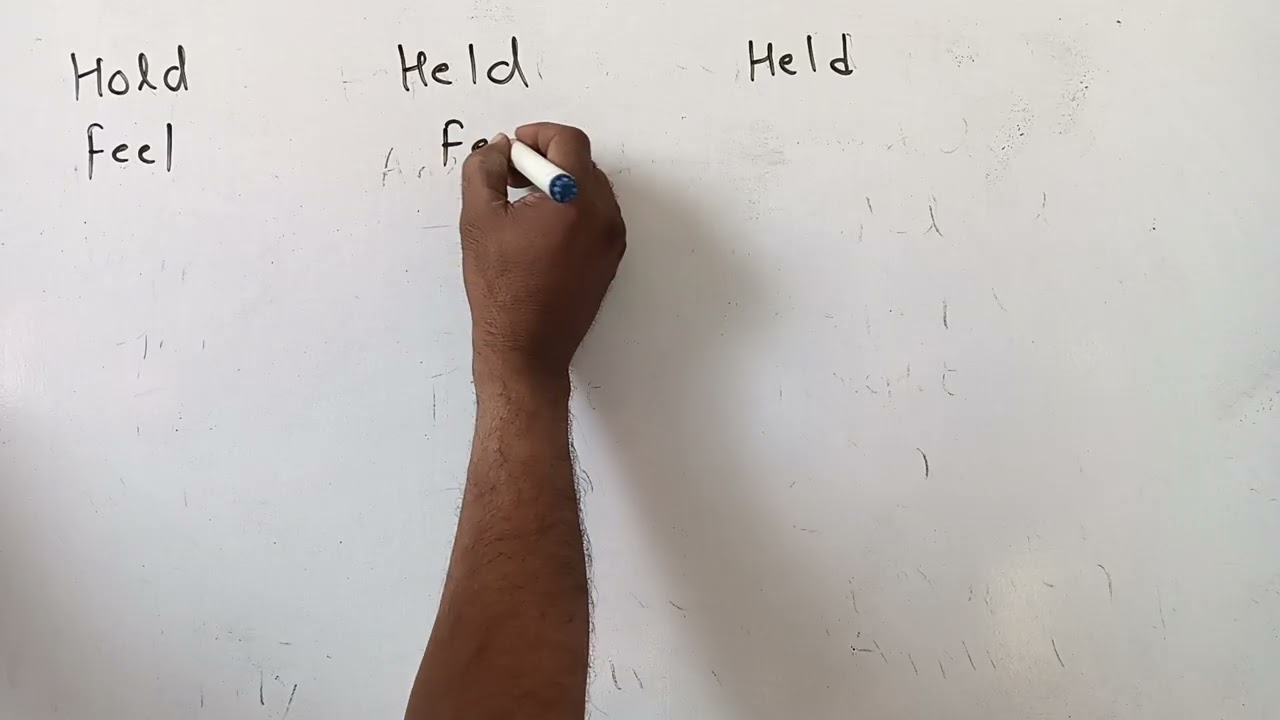 Hold Held Held
feel fe